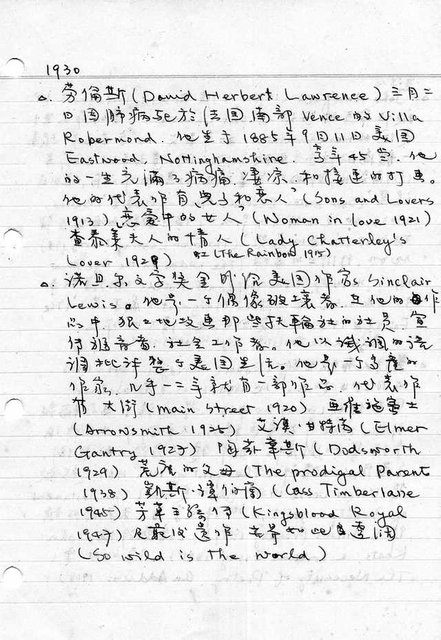 1930
△. 劳伦斯 (David Herbert Lawrence) 三月二
日因肺病死於法国南部 Vence 的 Villa
Robermond. 他生于1885年9月11日英国
Eastwood, Nottinghamshire 享年45岁. 他
的一生充满了病痛, 凄凉, 和接连的打击.
他的代表作有“儿子和恋人” (Sons and Lovers
1913) “恋爱中的女人” (Woman in love 1921)
查泰莱夫人的情人 (Lady Chatterley's
Lover 1929) 虹 (The Rainbow 1915)
△. 诺贝尔文学奖金 美国作家 Sinclair
Lewis。他是一个偶像破坏者. 在他的作
品中, 狠狠地攻击那些扶轮社的社员, 宣
传福音者, 社会工作者. 他以讽刺的语
调批评整个美国生活. 他是一个多产的
作家. 几乎一二年就有一部作品 他代表作
有 大街 (main Street 1920)
(Arrowsmith 1925) (Elmer
Gantry 1927) (Dodsworth
1929) 的父母 (The prodigal Parent
1938) 凯斯· (Cass Timberlane
1945) (Kingsblood Royal
1947) 及最後遗作 世界如此
(So wild is the world)